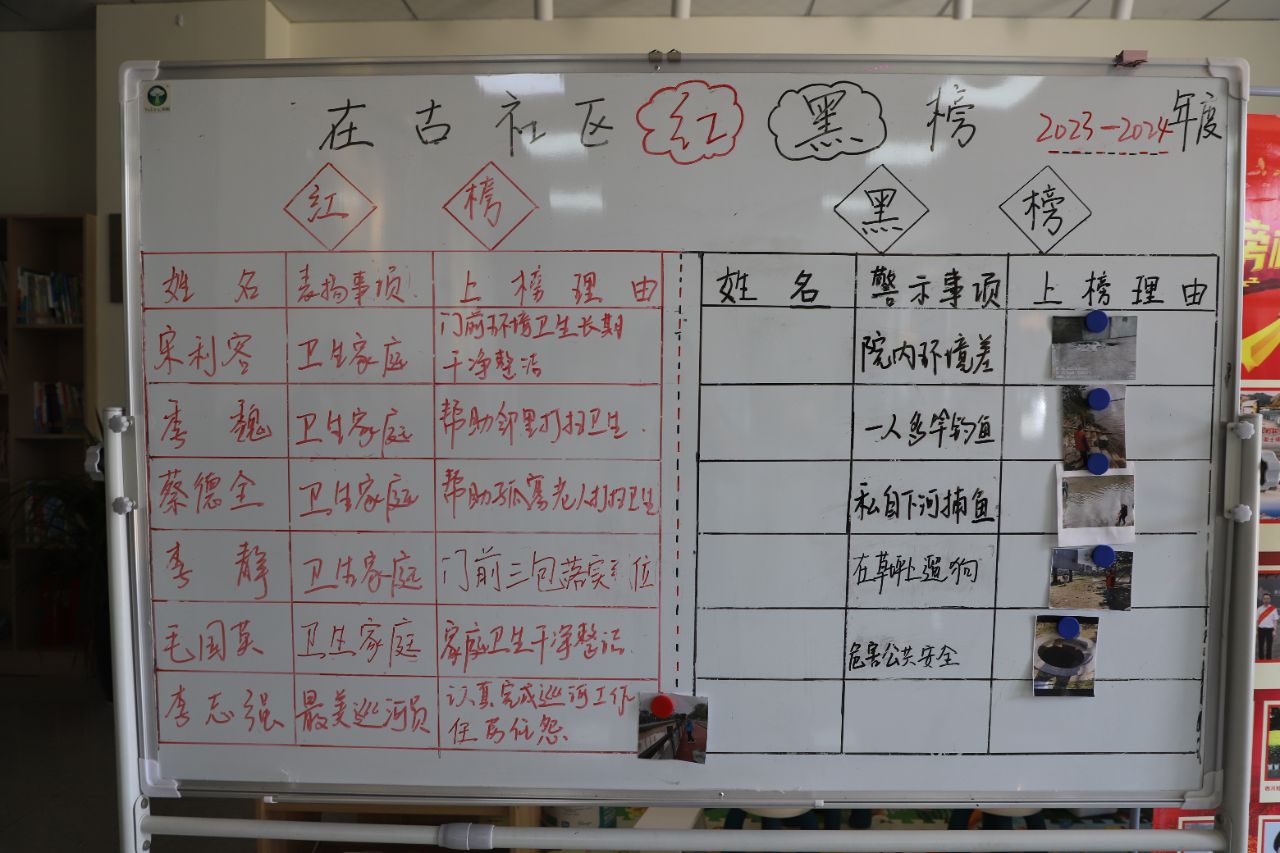 在古社区红黑榜 2023-2024年度
红榜
姓名 表扬事项 上榜理由
宋利容 卫生家庭 门前环境卫生长期
干净整洁
季魏 卫生家庭 帮助邻里打扫卫生.
蔡德全 卫生家庭 帮助孤寡老人打扫卫生
李静 卫生家庭 门前三包落实到位
毛国英 卫生家庭 家庭卫生干净整洁.
李志强 最美巡河员 认真完成巡河工作
任劳任怨
黑榜
姓名 警示事项 上榜理由
院内环境差
一人多竿钓鱼
私自下河捕鱼
在草坪上遛狗
危害公共安全